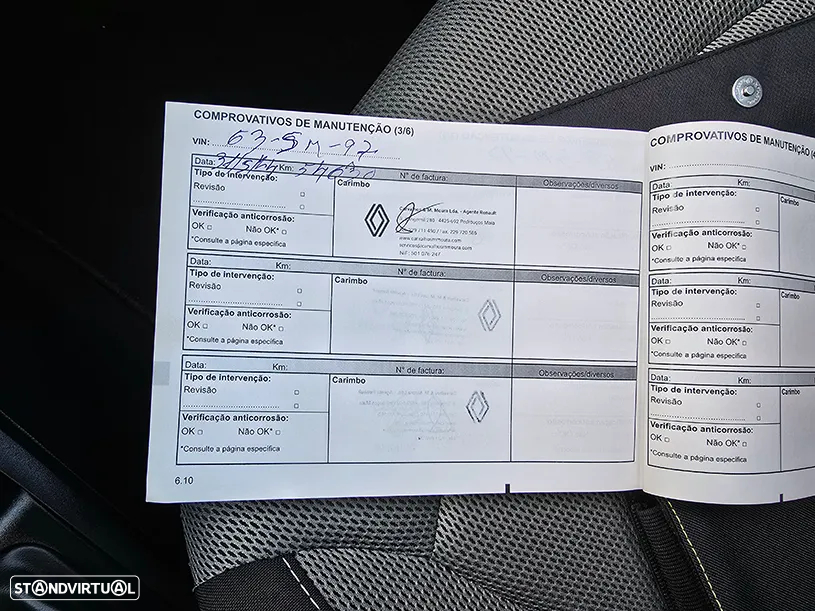 COMPROVATIVOS DE MANUTENÇÃO (3/6)
VIN: 63-SM-97
Data: Km: 54630 N° de factura:
Tipo de intervenção:
Carimbo
Observações/diversos
Revisão
Verificação anticorrosão:
OK Não OK*
*Consulte a página específica
M. Moura Lda. - Agente Renault
4425-692 Pedrouços Maia
www.carvalhoimmoura.com
NIF: 501 076 247
Data: Km: N° de factura:
Tipo de intervenção:
Carimbo
Observações/diversos
Revisão
Verificação anticorrosão:
OK Não OK*
*Consulte a página específica
Data: Km: N° de factura:
Tipo de intervenção:
Carimbo
Observações/diversos
Revisão
Verificação anticorrosão:
OK Não OK*
*Consulte a página específica
6.10
COMPROVATIVOS DE MANUTENÇÃO (4
VIN:
Data: Km:
Tipo de intervenção:
Carimbo
Revisão
Verificação anticorrosão:
OK Não OK*
*Consulte a página específica
Data: Km:
Tipo de intervenção:
Carimbo
Revisão
Verificação anticorrosão:
OK Não OK*
*Consulte a página específica
Data: Km:
Tipo de intervenção:
Carimbo
Revisão
Verificação anticorrosão:
OK Não OK*
*Consulte a página específica
STANDVIRTUAL